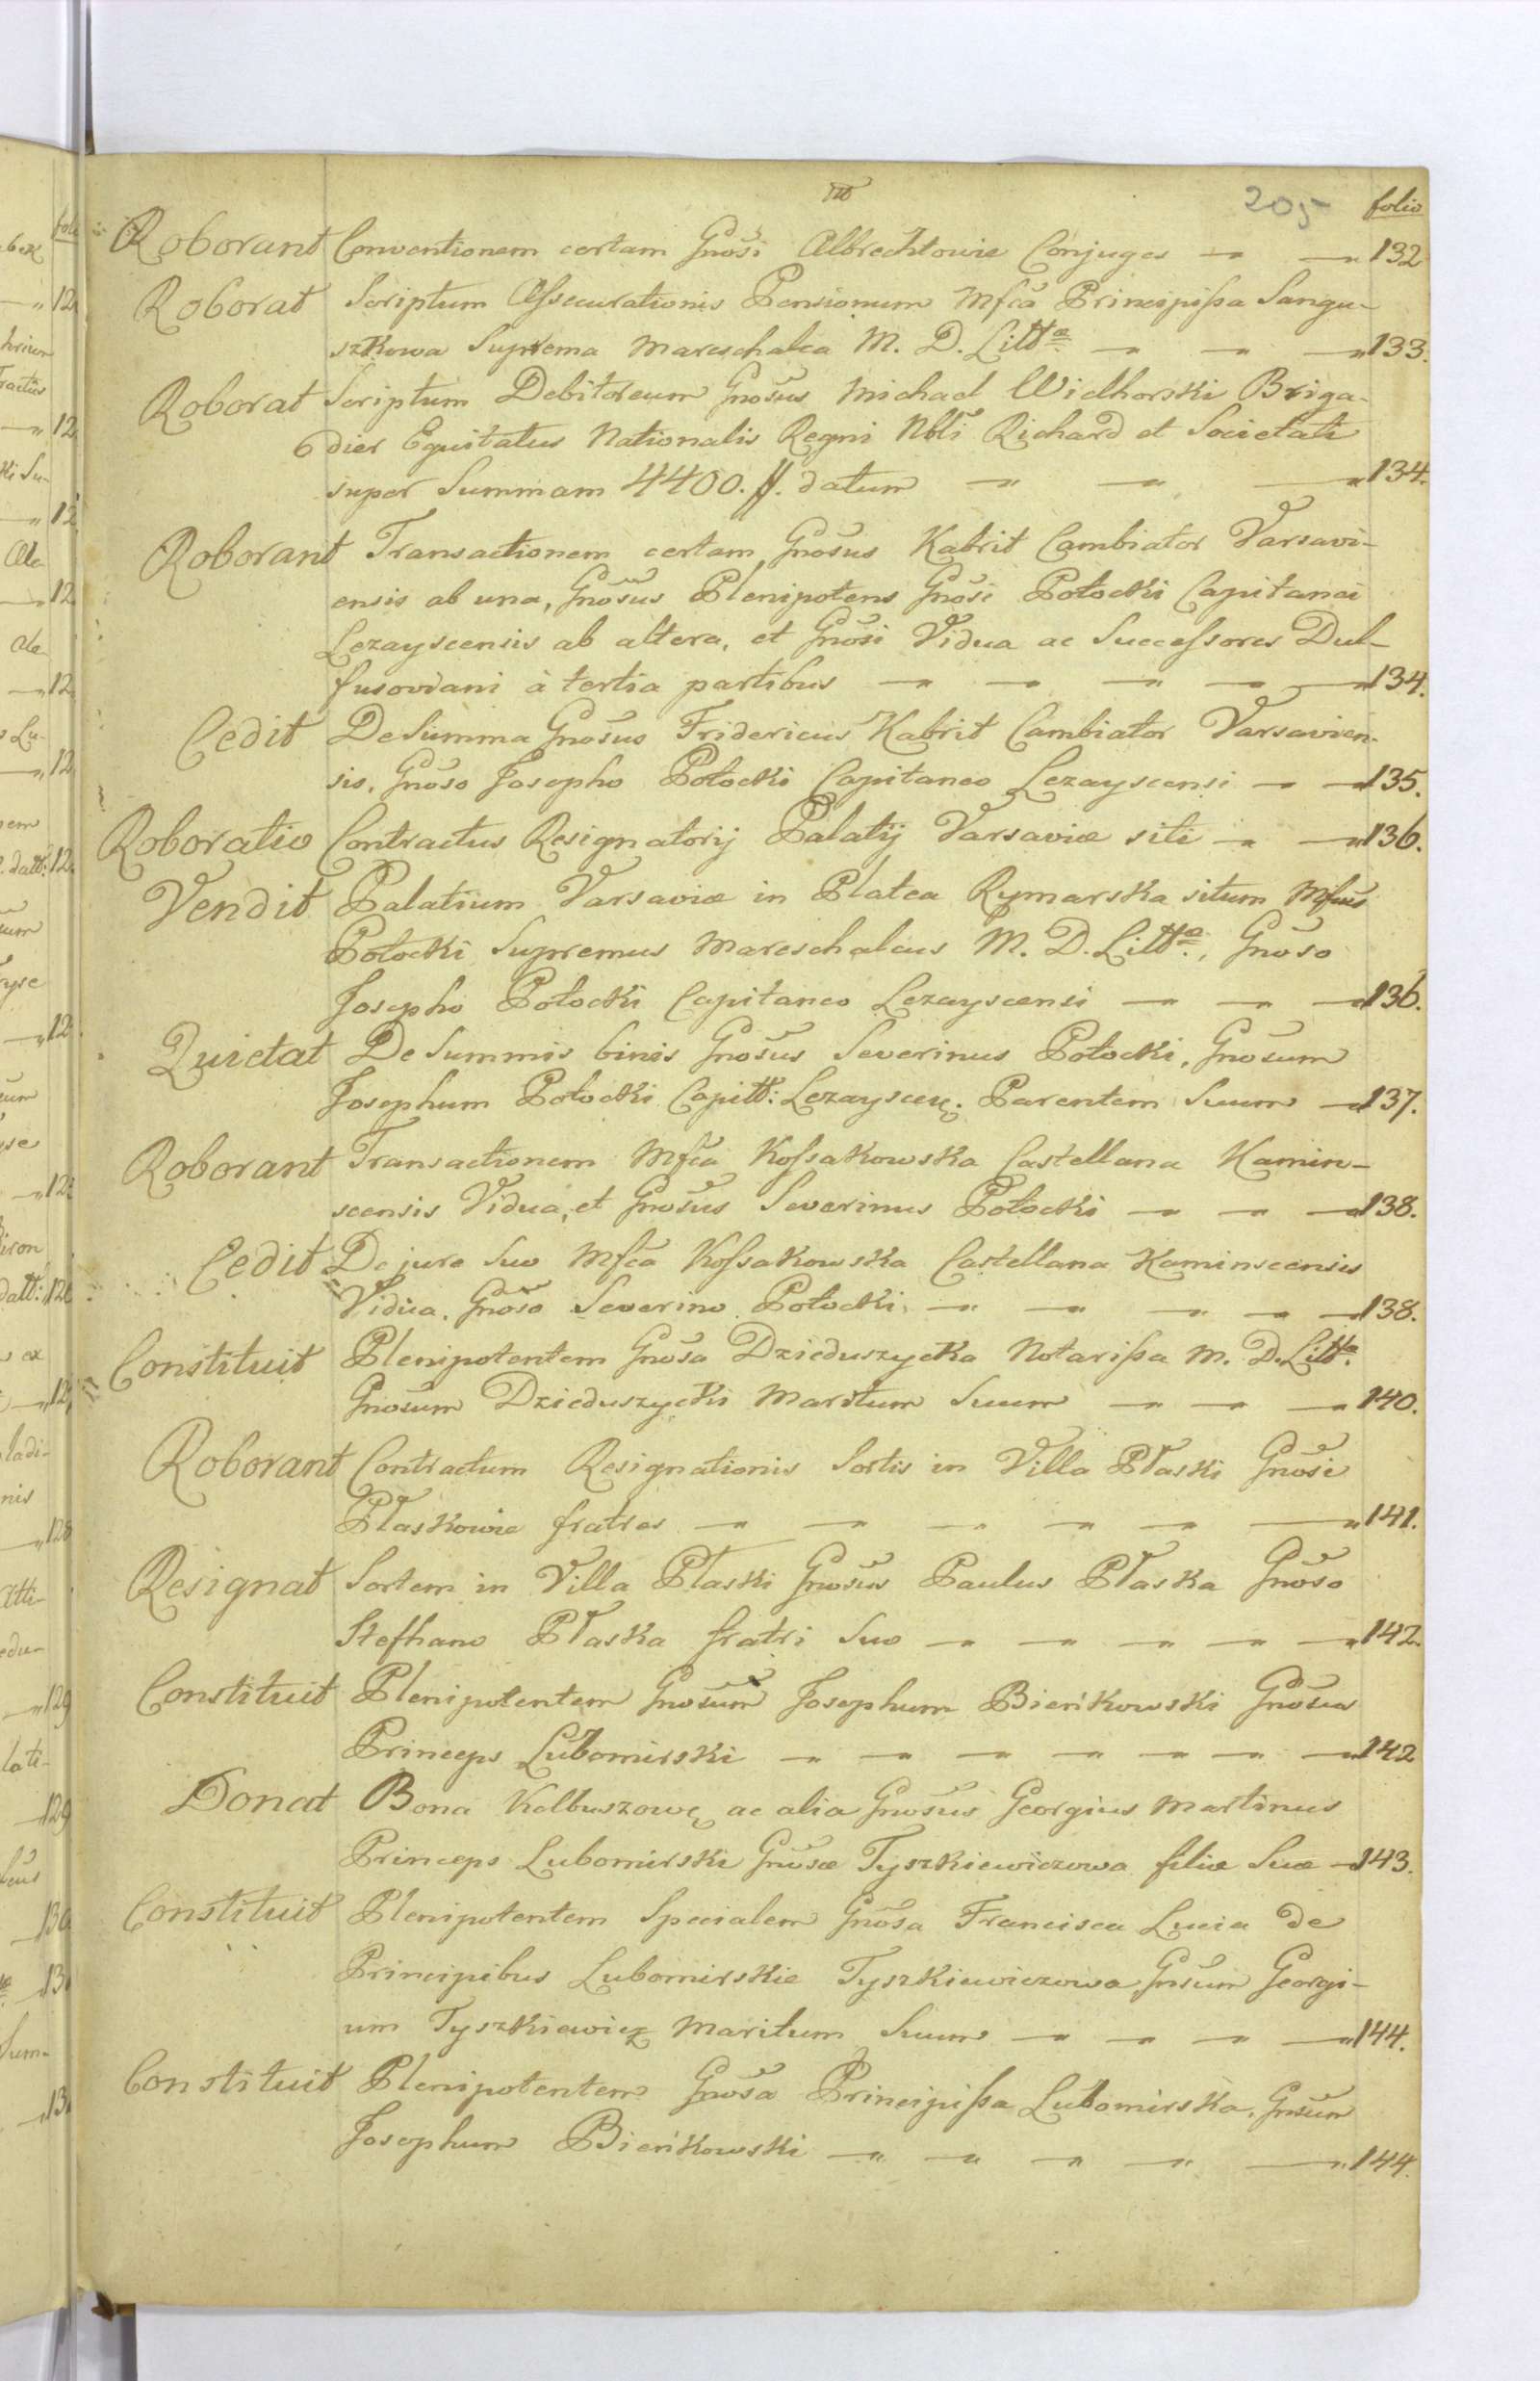 205 folio
Roborant Conventionem certam Gnosi Albrechtowie Conjuges — — 132
Roborat Scriptum Assecurationis Pensionum Mfca Principissa Sangu-
szkowa Suprema Mareschalca M. D. Littæ. — — — 133.
Roborat Scriptum Debitoreum Gnosus Michael Wielhorski Briga-
6 dier Equitatus Nationalis Regni Nbli Richard et Societati
super Summam 4400. ff. datum — — — 134.
Roborant Transactionem certam Gnosus Kabrit Cambiator Varsavi-
ensis ab una, Gnosus Plenipotens Gnosi Potocki Capitanei
Lezayscensis ab altera, et Gnosi Vidua ac Successores Dul-
fusoviani à tertia partibus — — — — — 134.
Cedit De Summa Gnosus Fridericus Kabrit Cambiator Varsavien-
sis, Gnoso Josepho Potocki Capitaneo Lezayscensi — — 135.
Roboratio Contractus Resignatorij Palatij Varsaviæ siti — — 136.
Vendit Palatium Varsaviæ in Platea Rymarska situm Mfcus
Potocki Supremus Mareschalcus M. D. Littæ., Gnoso
Josepho Potocki Capitaneo Lezayscensi — — — 136.
Quietat De Summis binis Gnosus Severinus Potocki, Gnosum
Josephum Potocki Capitt: Lezayscen. Parentem Suum — 137.
Roborant Transactionem Mfca Kossakowska Castellana Kamin-
scensis Vidua, et Gnosus Severinus Potocki — — — 138.
Cedit De jure Suo Mfca Kossakowska Castellana Kaminscensis
Vidua, Gnoso Severino Potocki — — — — — 138.
Constituit Plenipotentem Gnosa Dzieduszycka Notarissa M. D. Litta.
Gnosum Dzieduszycki Maritum Suum — — — 140.
Roborant Contractum Resignationis Sortis in Villa Płaski Gnosi
Płaskowie fratres — — — — — — 141.
Resignat Sortem in Villa Płaski Gnosus Paulus Płaska Gnoso
Stefhano Płaska fratri Suo — — — — — 142.
Constituit Plenipotentem Gnosum Josephum Bieńkowski Gnosus
Princeps Lubomirski — — — — — — — 142
Donat Bona Kolbuszowę ac alia Gnosus Georgius Martinus
Princeps Lubomirski Gnosæ Tyszkiewiczowa filiæ Suæ — 143.
Constituit Plenipotentem Specialem Gnosa Francisca Lucia de
Principibus Lubomirskie Tyszkiewiczowa Gnsum Georgi-
um Tyszkiewicz Maritum Suum — — — — 144.
Constituit Plenipotentem Gnosa Principissa Lubomirska, Gnsum
Josephum Bieńkowski — — — — — 144.